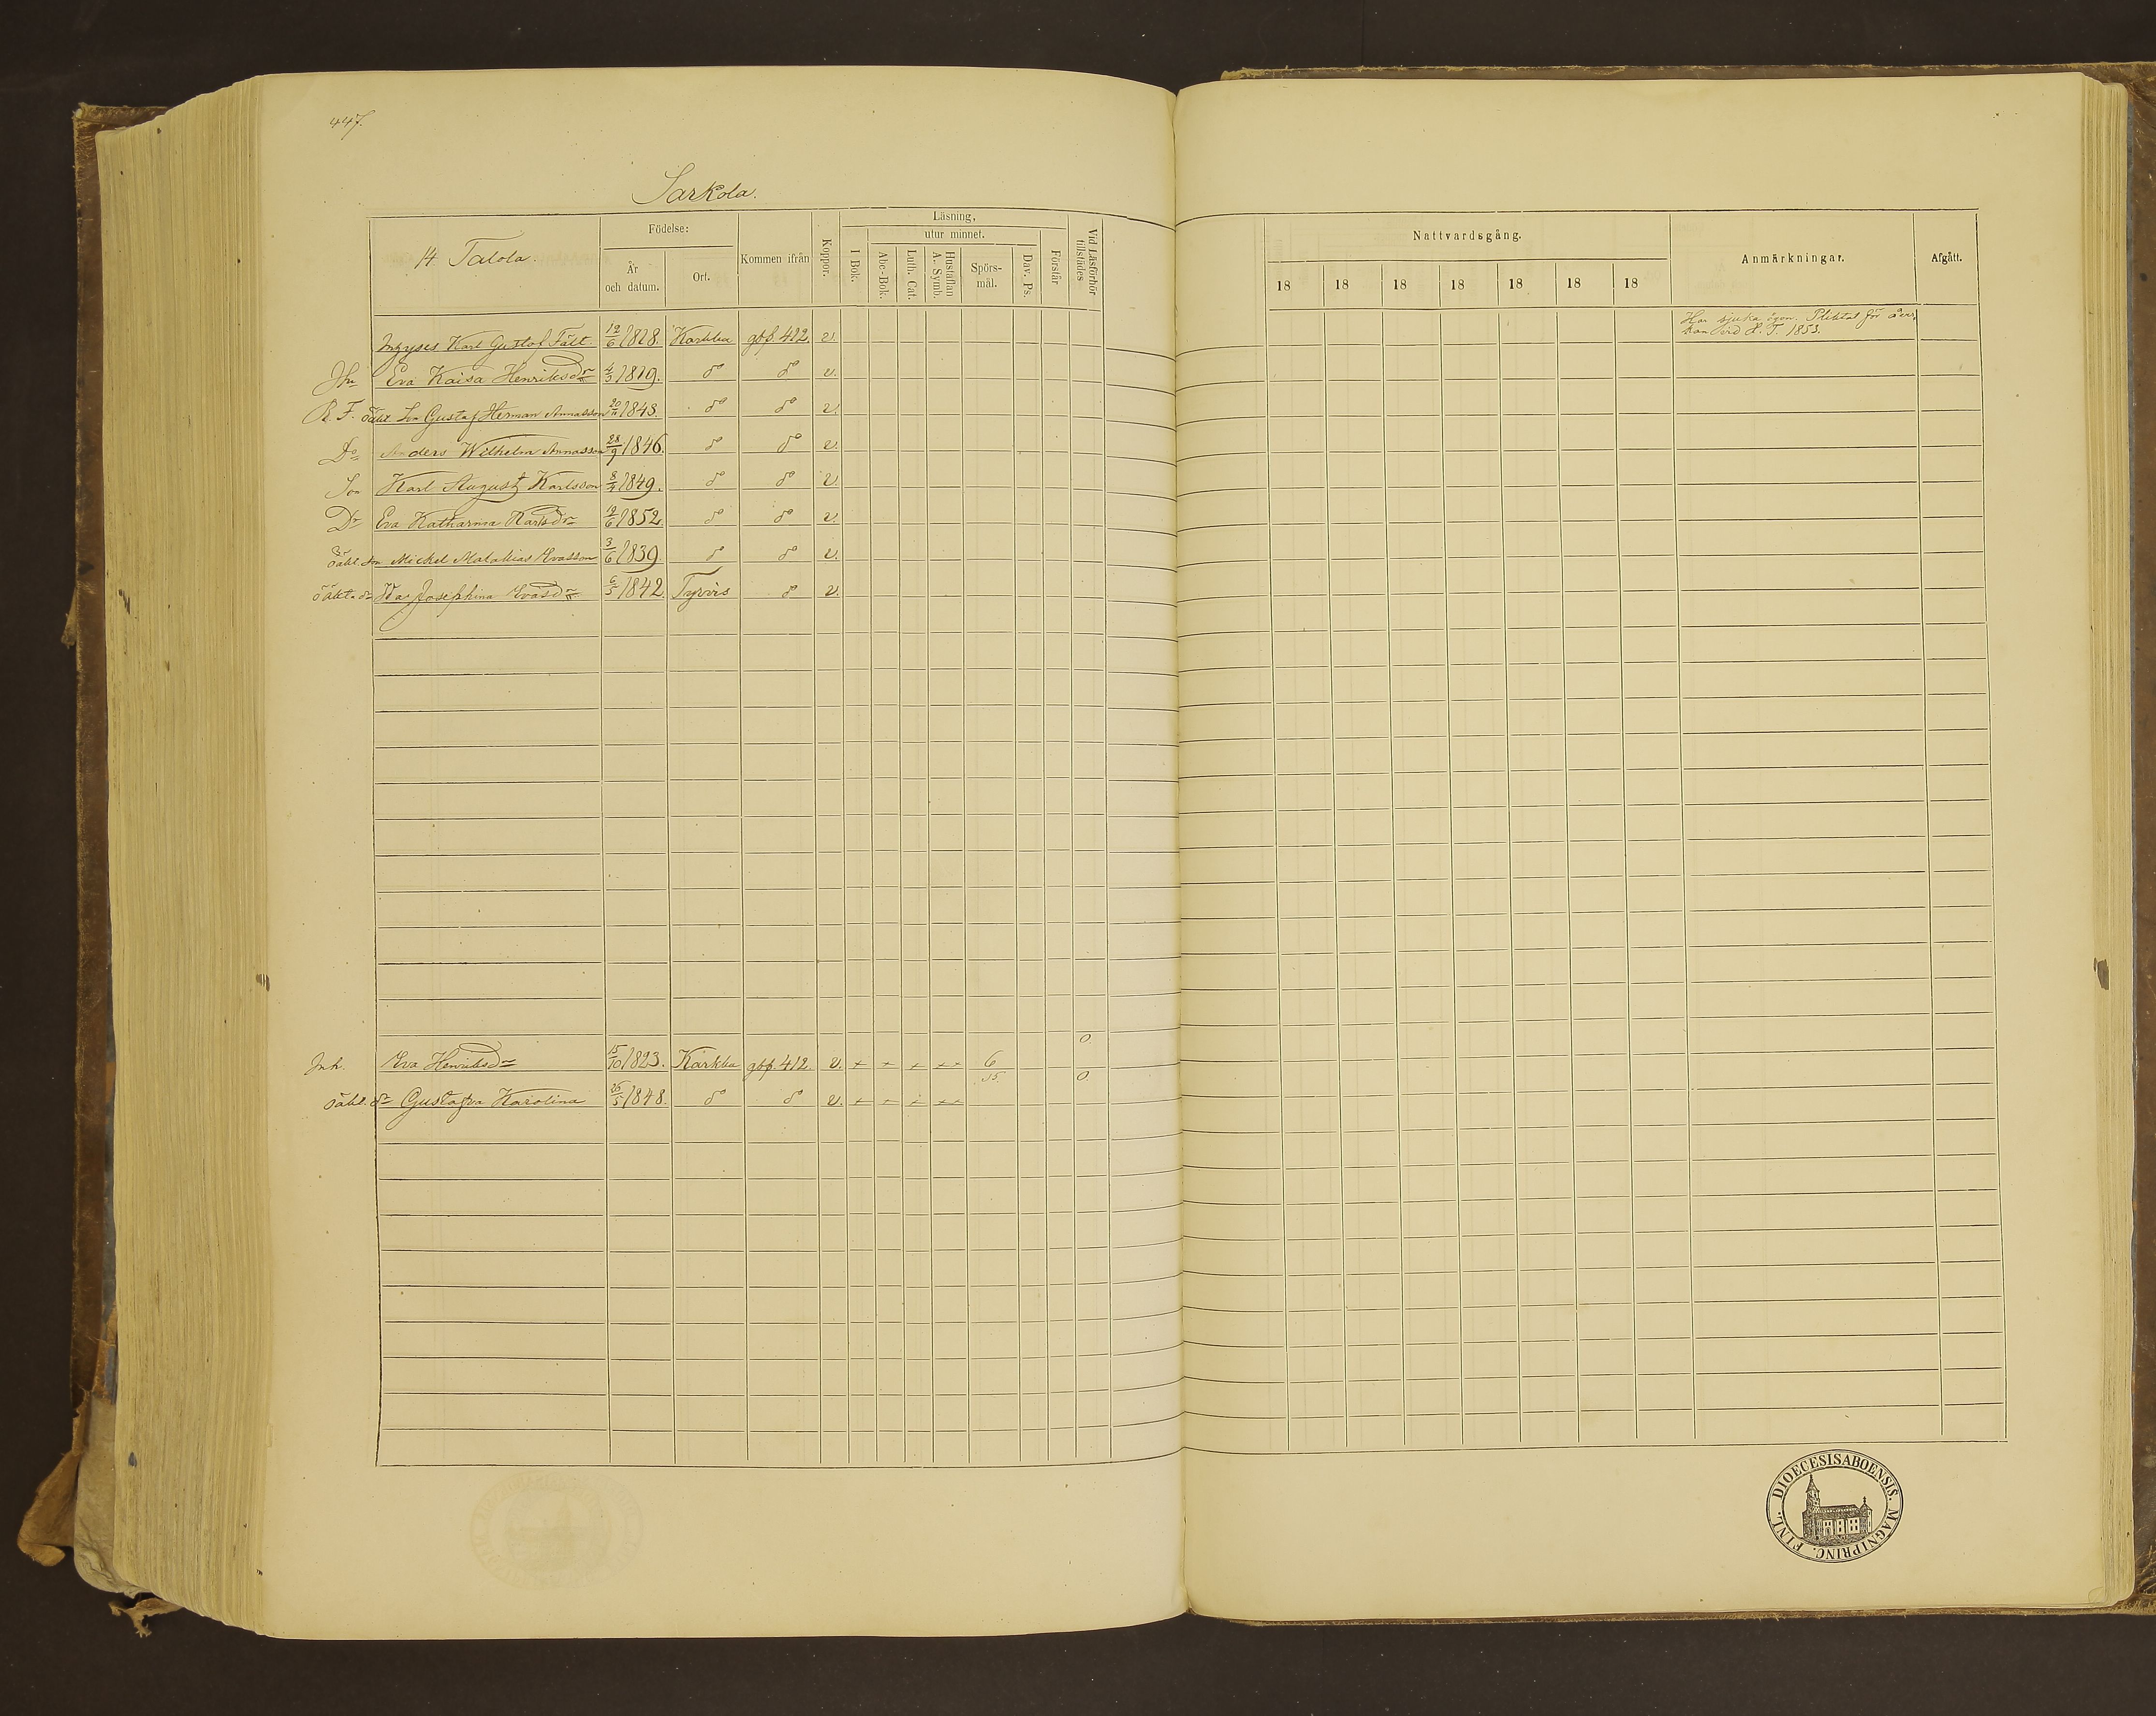 447.
Sarkola.
14 Talola.
Födelse:
År
och datum.
Ort.
Kommen ifrån
Koppor.
Läsning,
utur minnet.
I Bok.
Abc-Bok.
Luth. Cat.
Hustaflan
A. Symb.
Spörs-
mål.
Dav. Ps.
Förstår
Vid Läsförhör
tillstädes
Nattvardsgång.
18 18 18 18 18 18 18
Anmärkningar.
Afgått.
Karl Gustaf Fält. 12/6 1828. Karkku gbf. 412. v. Har sjuka ögon.
vid H. T. 1853.
Eva Kaisa Henriksdr 4/3 1819. do do v.
Son Gustaf Herman Annasson 20/11 1843 do do v.
Do Anders Wilhelm Annasson 28/9 1846. do do v.
Son Karl August Karlsson 8/4 1849. do do v.
Dr Eva Katharina Karlsdr 12/6 1852 do do v.
oäkt. son Mickel Malakias Evasson 3/6 1839. do do v.
oäkta dr Ida Josephina Evasdr 6/5 1842. Tyrvis do v.
Inh. Eva Henriksdr 15/10 1823. Karkku gbf. 412. v. + + + ++ 6 0
oäkt. dr Gustafva Karolina 26/5 1848. do do v. + + + ++ 15. 0
DIOECESIS ABOENSIS. MAGNI PRINC. FINL.